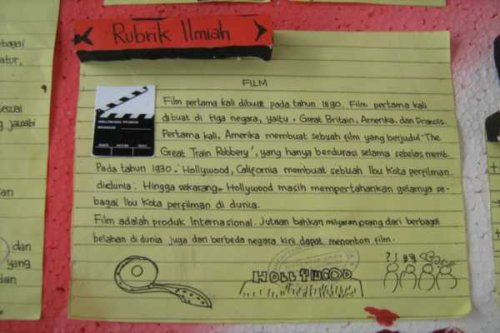 Rubrik Ilmiah
FILM
Film pertama kali dibuat pada tahun 1890. Film pertama kali
dibuat di tiga negara, yaitu, Great Britain, Amerika, dan Prancis.
Pertama kali, Amerika membuat sebuah film yang berjudul "The
Great Train Robbery", yang hanya berdurasi selama sebelas menit.
Pada tahun 1930. Hollywood, California membuat sebuah Ibu Kota perfilman
didunia. Hingga sekarang. Hollywood masih mempertahankan gelarnya se-
bagai Ibu Kota perfilman di dunia.
Film adalah produk Internasional. Jutaan bahkan milyaran orang dari berbagai
belahan di dunia juga dari berbeda negara kini dapat menonton film.
HOLLYWOOD
dan
yang